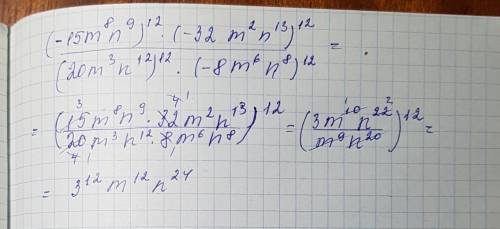 (-15m⁸n⁹)¹² · (-32 m²n¹³)¹² / (20m³n¹²)¹² · (-8m⁶n⁸)¹² =
= (15m⁸n⁹ · 32m²n¹³ / 20m³n¹² · 8m⁶n⁸)¹² = (3m¹⁰n²² / m⁹n²⁰)¹² =
= 3¹² m¹² n²⁴